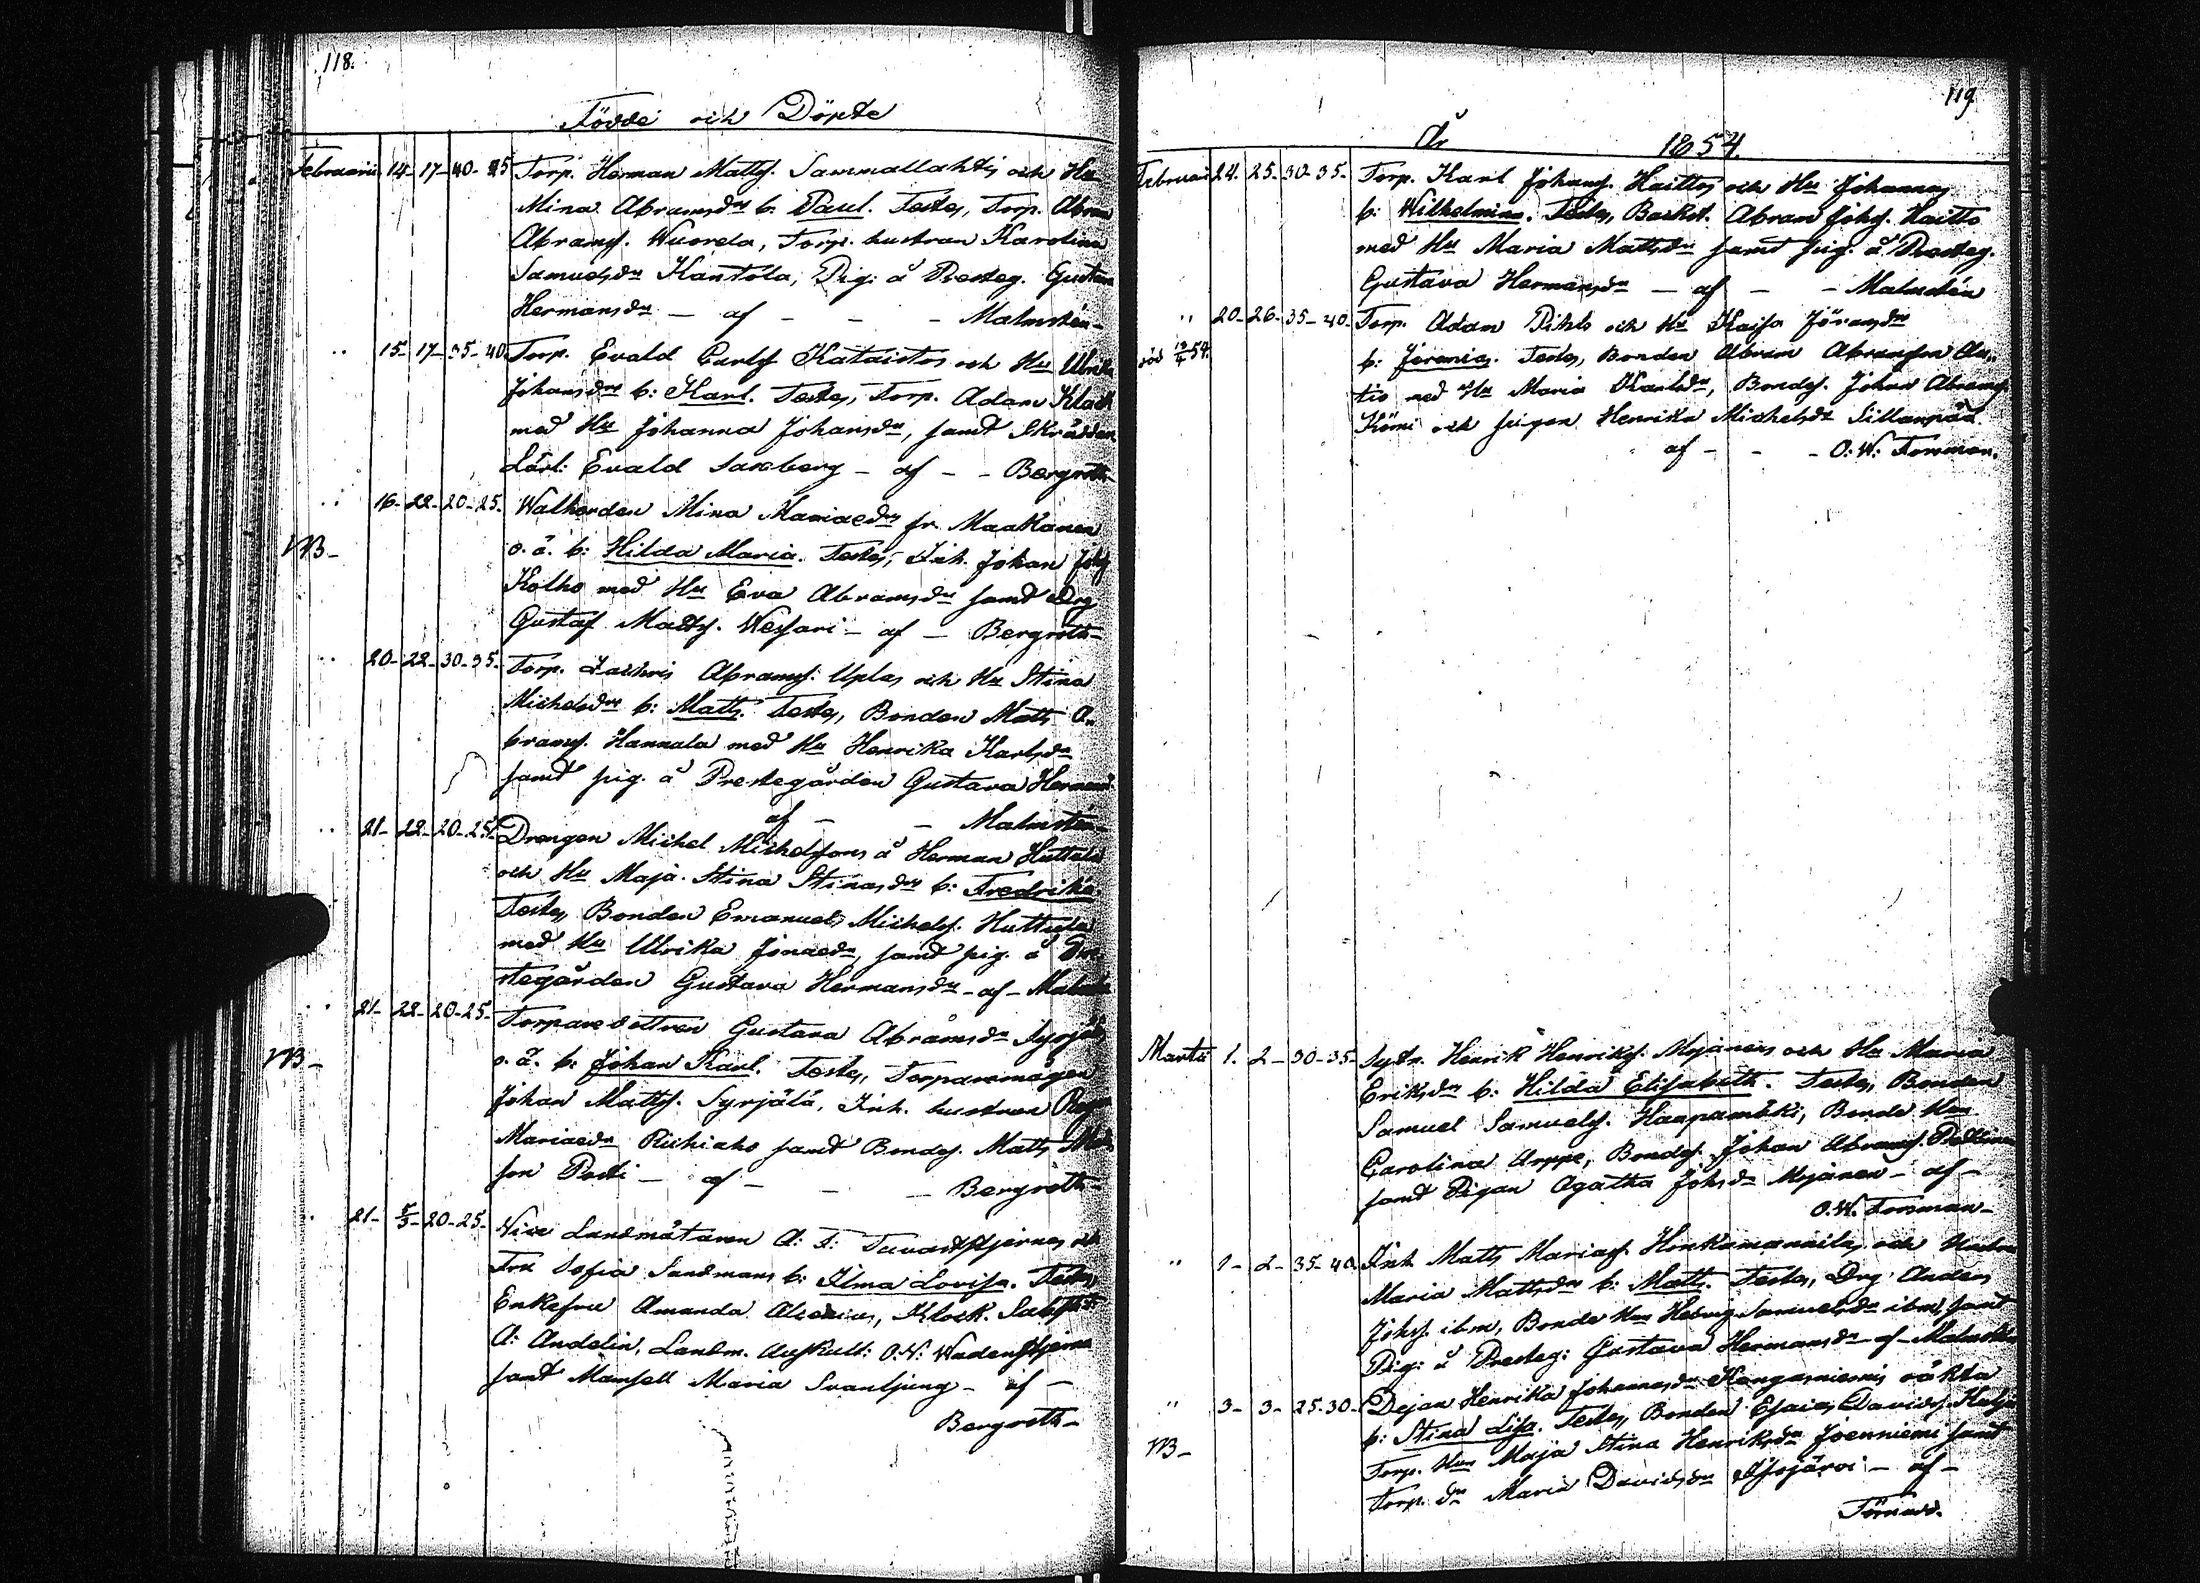 118.
Födde och Döpte
Februarii 14- 17- 40- 45 Torp. Herman Mattss. Sammallahtis och Hu
Mina Abramsdr b: Paul. Testes, Torp. Abram
Abramss. Wuorela, Torp. hustrun Karolina
Samuelsdr Kantola, Pig: å Presteg. Gustava
Hermansdr – af – – – Malmstén –
" 15- 17- 35- 40 Torp. Evald Carlss Kataistos och Hu Ulrika
Johansdr b: Karl. Testes, Torp. Adam
med Hu Johanna Johansdr, samt Skräddare
Lärl: Evald Saxberg – af – – Bergroth –
" 16- 22- 20- 25- Walhorden Mina Mariaedr fr. Maakanen
NB – o. ä. b: Hilda Maria. Testes, Inh. Johan Johss
Kolho med Hu Eva Abramsdr samt Drg
Gustaf Mattss. Wessari – af – Bergroth –
" 20- 22- 30- 35- Torp. Zachris Abramss. Uplas och Hu Stina
Michelsdr b: Matts. Testes, Bonden Matts A-
bramss. Hannula med Hu Henrika Karlsdr
samt pig. å Prestegården Gustava Hermansd
af – – Malmstén –
" 21- 22- 20- 25- Drengen Michel Michelssons å Herman Huttula
och Hu Maja Stina Stinasdr b: Fredrika.
Testes, Bonden Emanuel Michelss. Huttula
med Hu Ulrika Jonaedr, samt pig. å Pre-
stegården Gustava Hermansdr – af – Malmstén
" 21- 22- 20- 25- Torparedottren Gustava Abramsdr Syrjäläs
NB – o. ä. b: Johan Karl. Testes, Torparemågen
Johan Mattss. Syrjälä, Inh. hustrun
Mariaedr Riihiaho samt Bondes. Matts
son Posti – af – – – Bergroth –
" 21- 5/3- 20- 25- Vice Landmätaren A: F: Tavaststjernas och
Fru Sofia Sandmans b: Ilma Lovisa. Testes,
Enkefru Amanda Alcenius, Klock. Subst:
A: Andelin, Landm. Auskult: O. W: Wadenstjerna
samt Mamsell Maria Svanljung – af –
Bergroth –
119
År 1854.
Februari 24. 25- 30- 35- Torp. Karl Johanss. Haittos och Hu Johannas
b: Wilhelmina. Testes, Backst. Abram Johss. Haitto
med Hu Maria Mattsdr samt pig. å Presteg.
Gustava Hermansdr – af – – Malmstén
" 20- 26- 35- 40- Torp. Adam Pihls och Hu Kaisa Göransdr
död 19/4 54. b: Jeremias. Testes, Bonden Abram Abramsson Au-
tio med Hu Maria Karlsdr, Bondes. Johan Abramss
Kömi och pigan Henrika Michelsdr Sillanpää.
af – – – O: W: Forsman.
Martii 1. 2- 30- 35- Sytn. Henrik Henrikss. Myjänens och Hu Maria
Eriksdr b: Hilda Elisabeth. Testes, Bonden
Samuel Samuelss. Haapamäki, Bonde Hun
Carolina Arppe, Bondes. Johan Abramss.
samt Pigan Agatha Johsdr Myjänen – af –
O. W. Forsman –
" 1- 2- 35- 40. Inh Matts Mariass. Honkamannilas och Hustru
Maria Mattsdr b: Matts. Testes, Drg Anders
Johss. ibm, Bonde Hun Hedvig Samuelsdr ibm, samt
Pig: å Presteg: Gustava Hermansdr – af – Malmstén
" 3- 3- 25- 30- Dejan Henrika Johannesdr Kangasniemis oäkta
NB – b: Stina Lisa. Testes, Bonden Esaias Davidss.
Torp. Hun Maja Stina Henriksdr Joenniemi samt
Torp. dr Maria Davidsdr – af –
Törnudd.